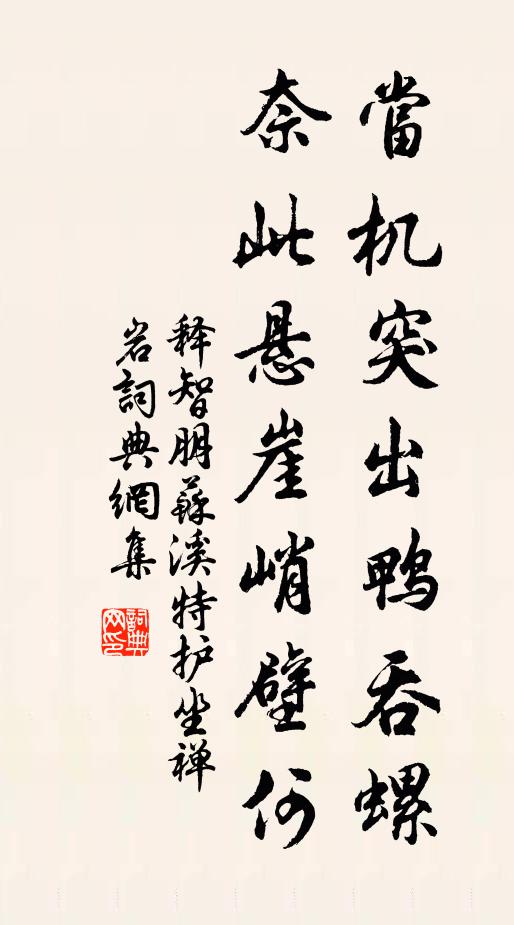 當机突出鸭吞螺
奈此悬崖峭壁何
释智朋蘇溪特护坐禅
岩詞典網集
詞典网印